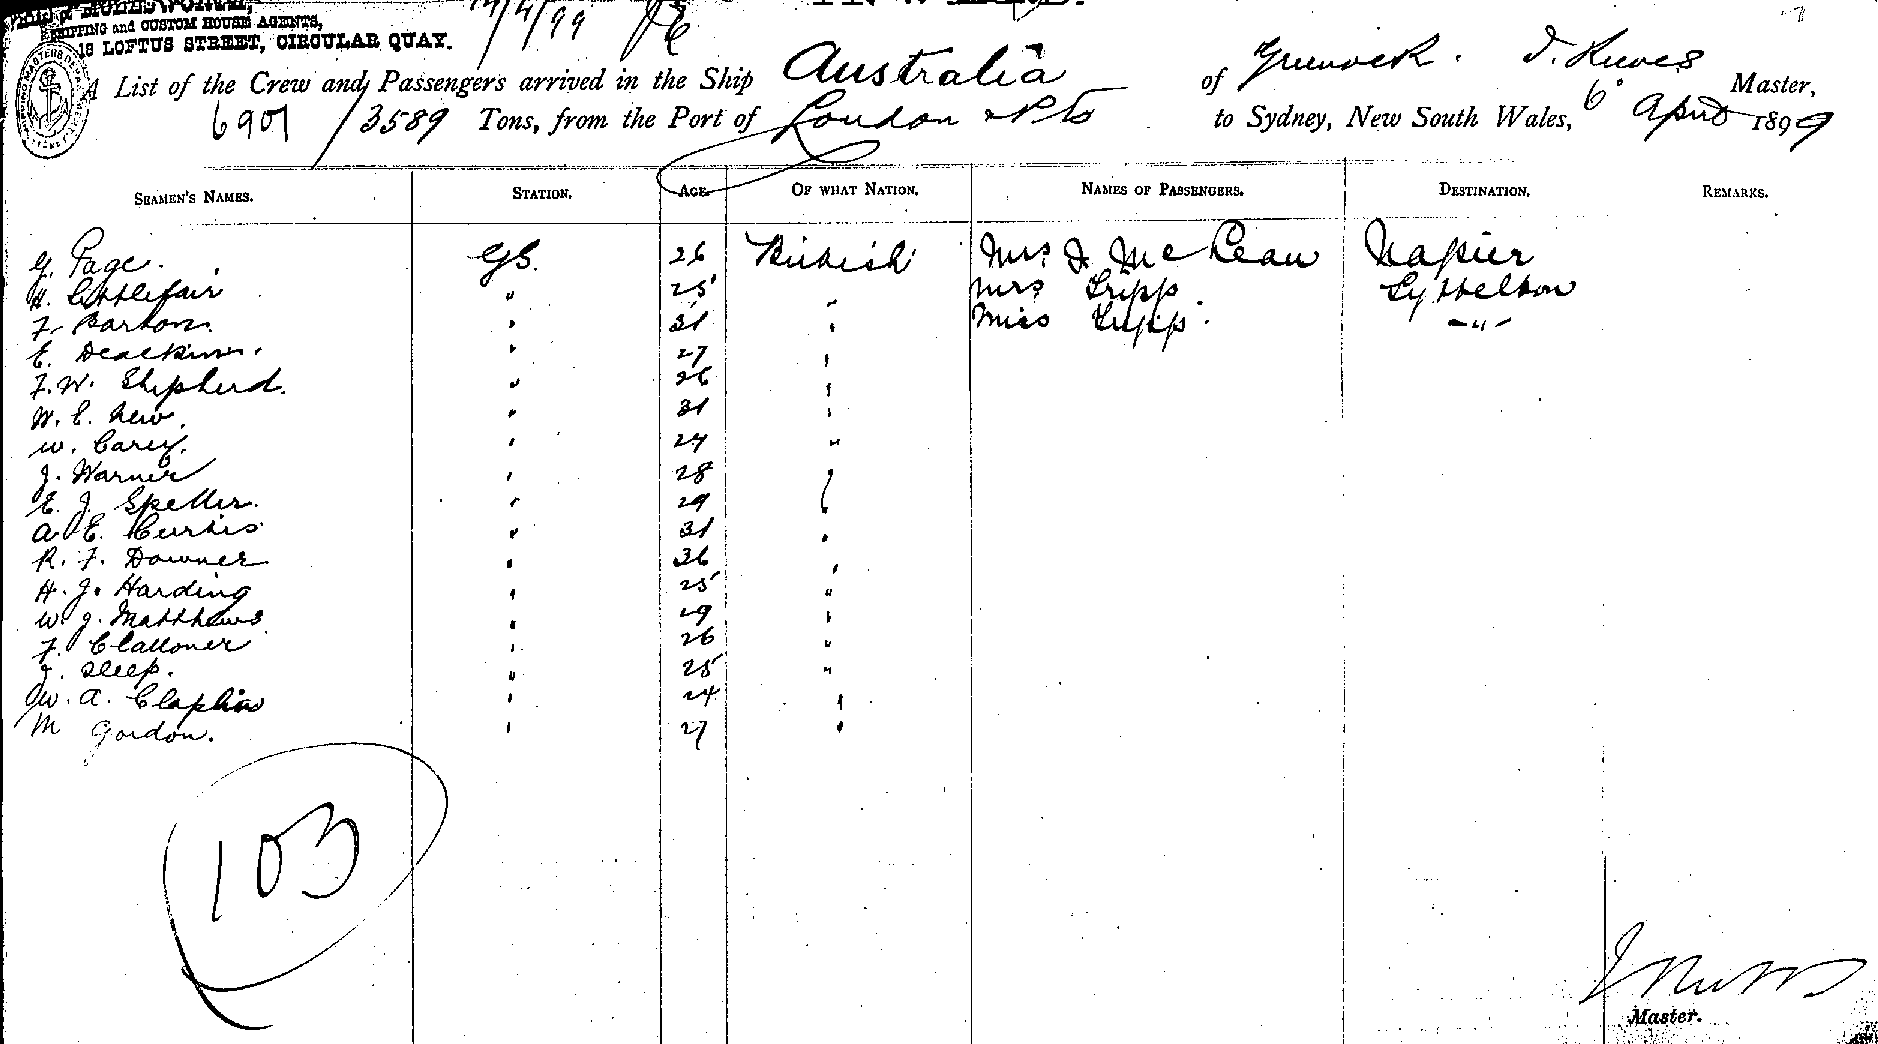 SHIPPING and CUSTOM HOUSE AGENTS,
18 LOFTUS STREET, CIRCULAR QUAY.
A List of the Crew and Passengers arrived in the Ship Australia of Greenock. Master,
6901/3589 Tons, from the Port of London & Pts to Sydney, New South Wales, 6 April 1899
SEAMEN'S NAMES. STATION. AGE OF WHAT NATION. NAMES OF PASSENGERS. DESTINATION. REMARKS.
G. Page. GS. 26 British Mrs J McLean Napier
H. Littlefair " 25 " Mrs Tripp Lyttelton
F. Barton. " 31 " Miss Tripp. -"-
E. Deackin. " 27 "
F. W. Shepherd. " 26 "
W. E. New. " 31 "
W. Carey. " 24 "
J. Warner " 28
E. J. Speller. " 29
A E. Curtis " 31 "
R. F. Downer " 36 "
H. J. Harding " 25 "
W. J. Matthews " 29 "
F. Challoner " 26 "
Sleep. " 25 "
W. A. Claphin " 24 "
M Gordon. " 27 "
103
Master.